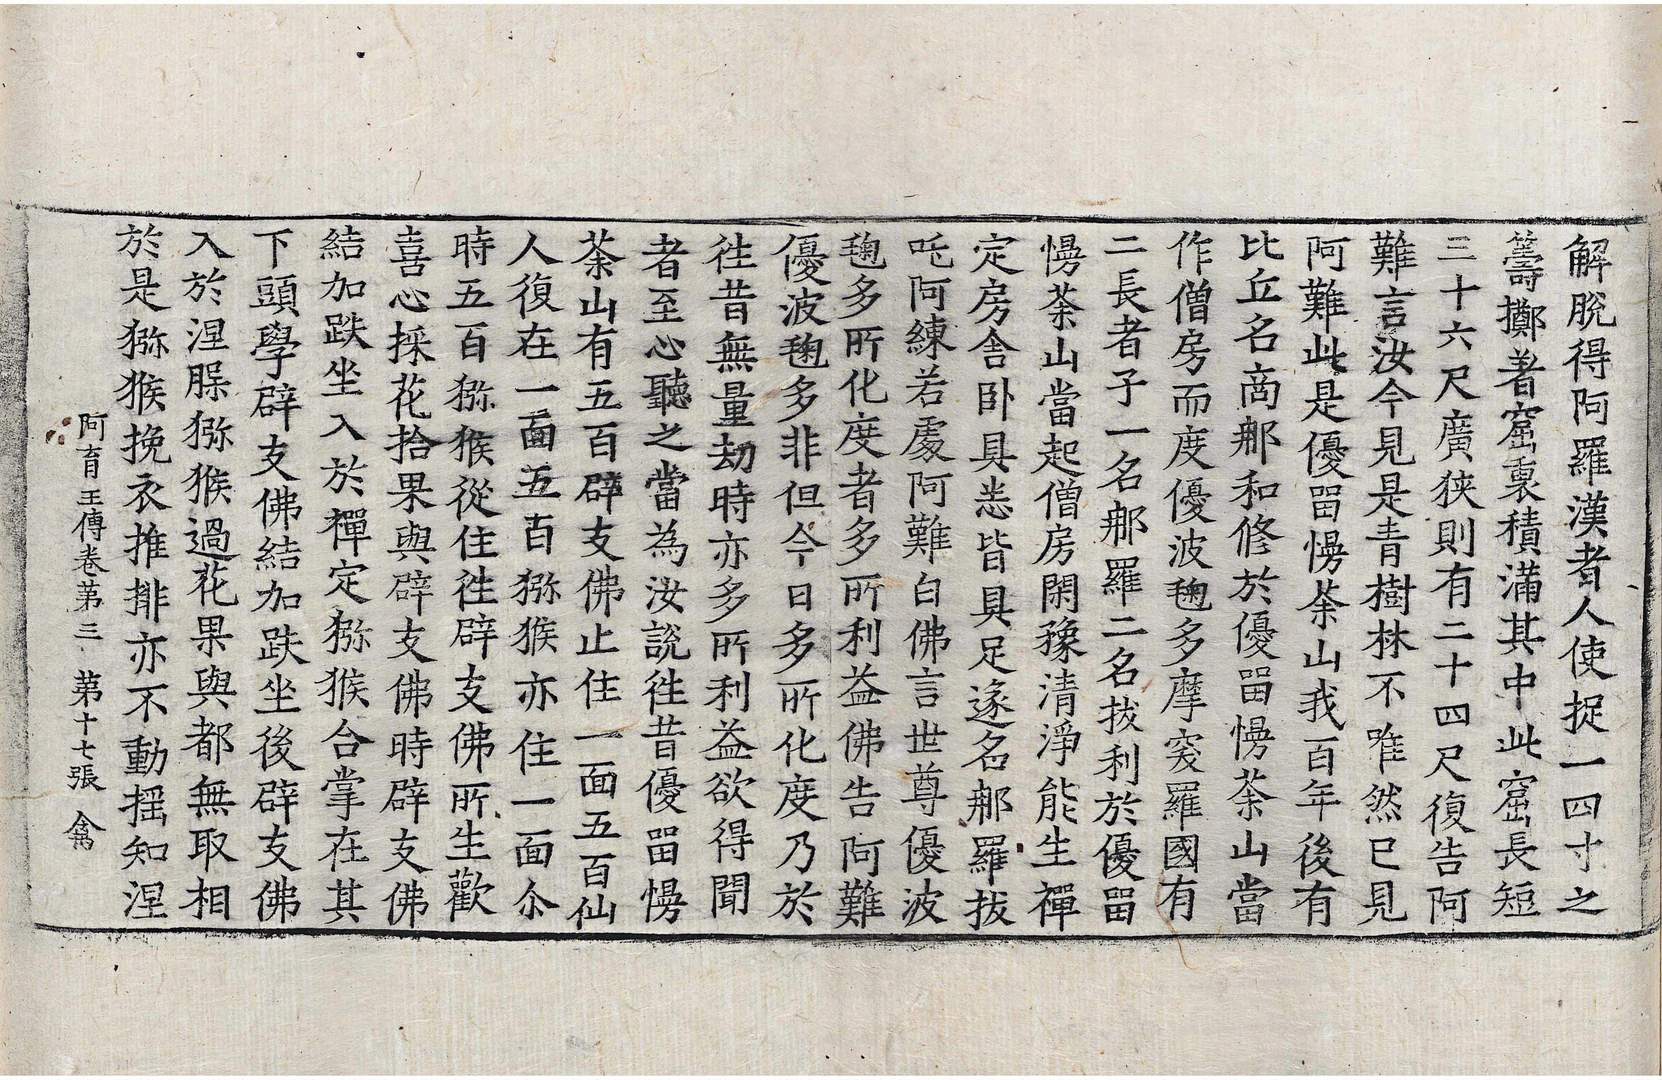 解脫得阿羅漢者人使捉一四寸之
籌擲著窟裏積滿其中此窟長短
三十六尺廣狹則有二十四尺復告阿
難言汝今見是青樹林不唯然已見
阿難此是優留慢荼山我百年後有
比丘名商那和修於優留慢荼山當
作僧房而度優波毱多摩突羅國有
二長者子一名那羅二名拔利於優留
慢荼山當起僧房閑豫清淨能生禪
定房舍卧具恙皆具足遂名那羅拔
吒阿練若處阿難白佛言世尊優波
毱多所化度者多所利益佛告阿難
優波毱多非但今日多所化度乃於
徃昔無量劫時亦多所利益欲得聞
者至心聽之當為汝說徃昔優留慢
荼山有五百辟支佛止住一面五百仙
人復在一面五百獼猴亦住一面尒
時五百獼猴從住徃辟支佛所生歡
喜心採花拾果與辟支佛時辟支佛
結加趺坐入於禪定獼猴合掌在其
下頭學辟支佛結加趺坐後辟支佛
入於涅槃獼猴過花果與都無取相
於是獼猴挽衣推排亦不動搖知涅
阿育王傳卷第三 第十七張 禽